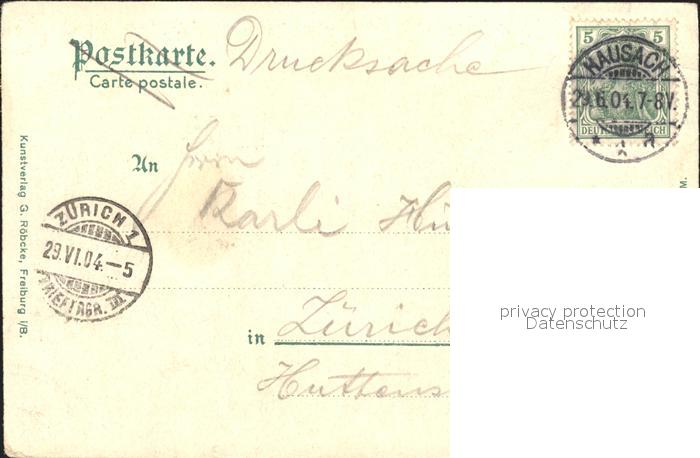 Postkarte. Drucksache
Carte postale.
5 5
DEUTSCHES REICH
HAUSACH
29.6.04.7-8V.
An Herrn
Karli
ZÜRICH 1
29.VI.04.–5
BRIEFTRGR. III
in Zürich
Kunstverlag G. Röbcke, Freiburg i/B.
M.
privacy protection
Datenschutz